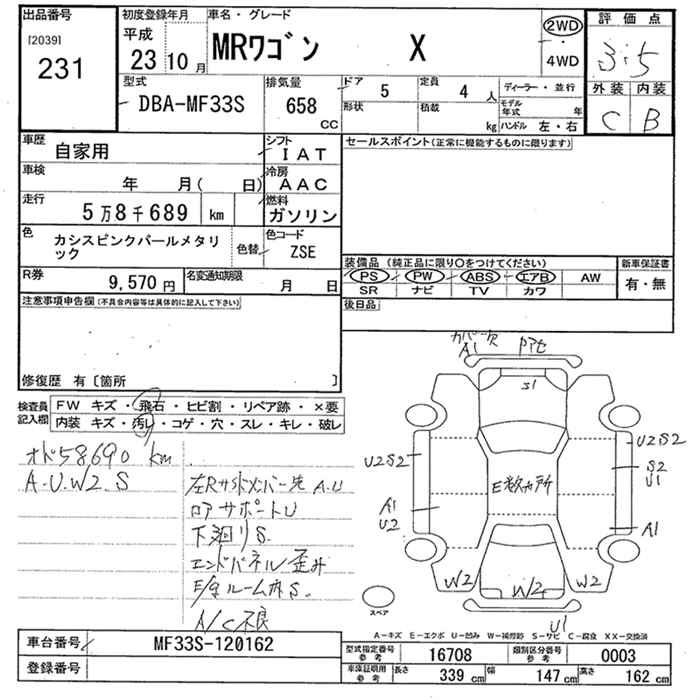 出品番号
[2039]
231
初度登録年月
平成
23 10 月
車名・グレード
MRワゴン X
2WD
・
4WD
評価点
3.5
外装 内装
C B
型式
DBA-MF33S
排気量
658 CC
ドア 5
定員 4 人
形状
積載 kg
ディーラー・並行
モデル年式 年
ハンドル 左・右
車歴 自家用
シフト IAT
車検 年 月( 日)
冷房 AAC
走行 5万8千689 km
燃料 ガソリン
色 カシスピンクパールメタリック
色替
色コード ZSE
R券 9,570 円
名変通知期限 月 日
セールスポイント(正常に機能するものに限ります)
装備品 (純正品に限り○をつけてください)
PS PW ABS エアB AW
SR ナビ TV カワ
新車保証書
有・無
後日品
注意事項申告欄 (不具合内容等は具体的に記入して下さい)
修復歴 有〔箇所 〕
検査員記入欄
FW キズ・飛石・ヒビ割・リペア跡・×要
内装 キズ・汚レ・コゲ・穴・スレ・キレ・破レ
オド58690 km
A.U.W2.S
左Rサイドメンバー先 A.U
ロアサポートU
下廻りS.
エンドパネル歪み
E/gルーム内S.
A/C不良
カバー欠
A1
S1
U2S2
U2S2
S2
U1
E数ヶ所
A1
U2
A1
W2
W2
W2
U1
スペア
A-キズ E-エクボ U-凹み W-補修跡 S-サビ C-腐食 XX-交換済
車台番号 MF33S-120162
登録番号
型式指定番号 参考 16708
類別区分番号 参考 0003
車庫証明用 参考 長さ 339 cm 幅 147 cm 高さ 162 cm